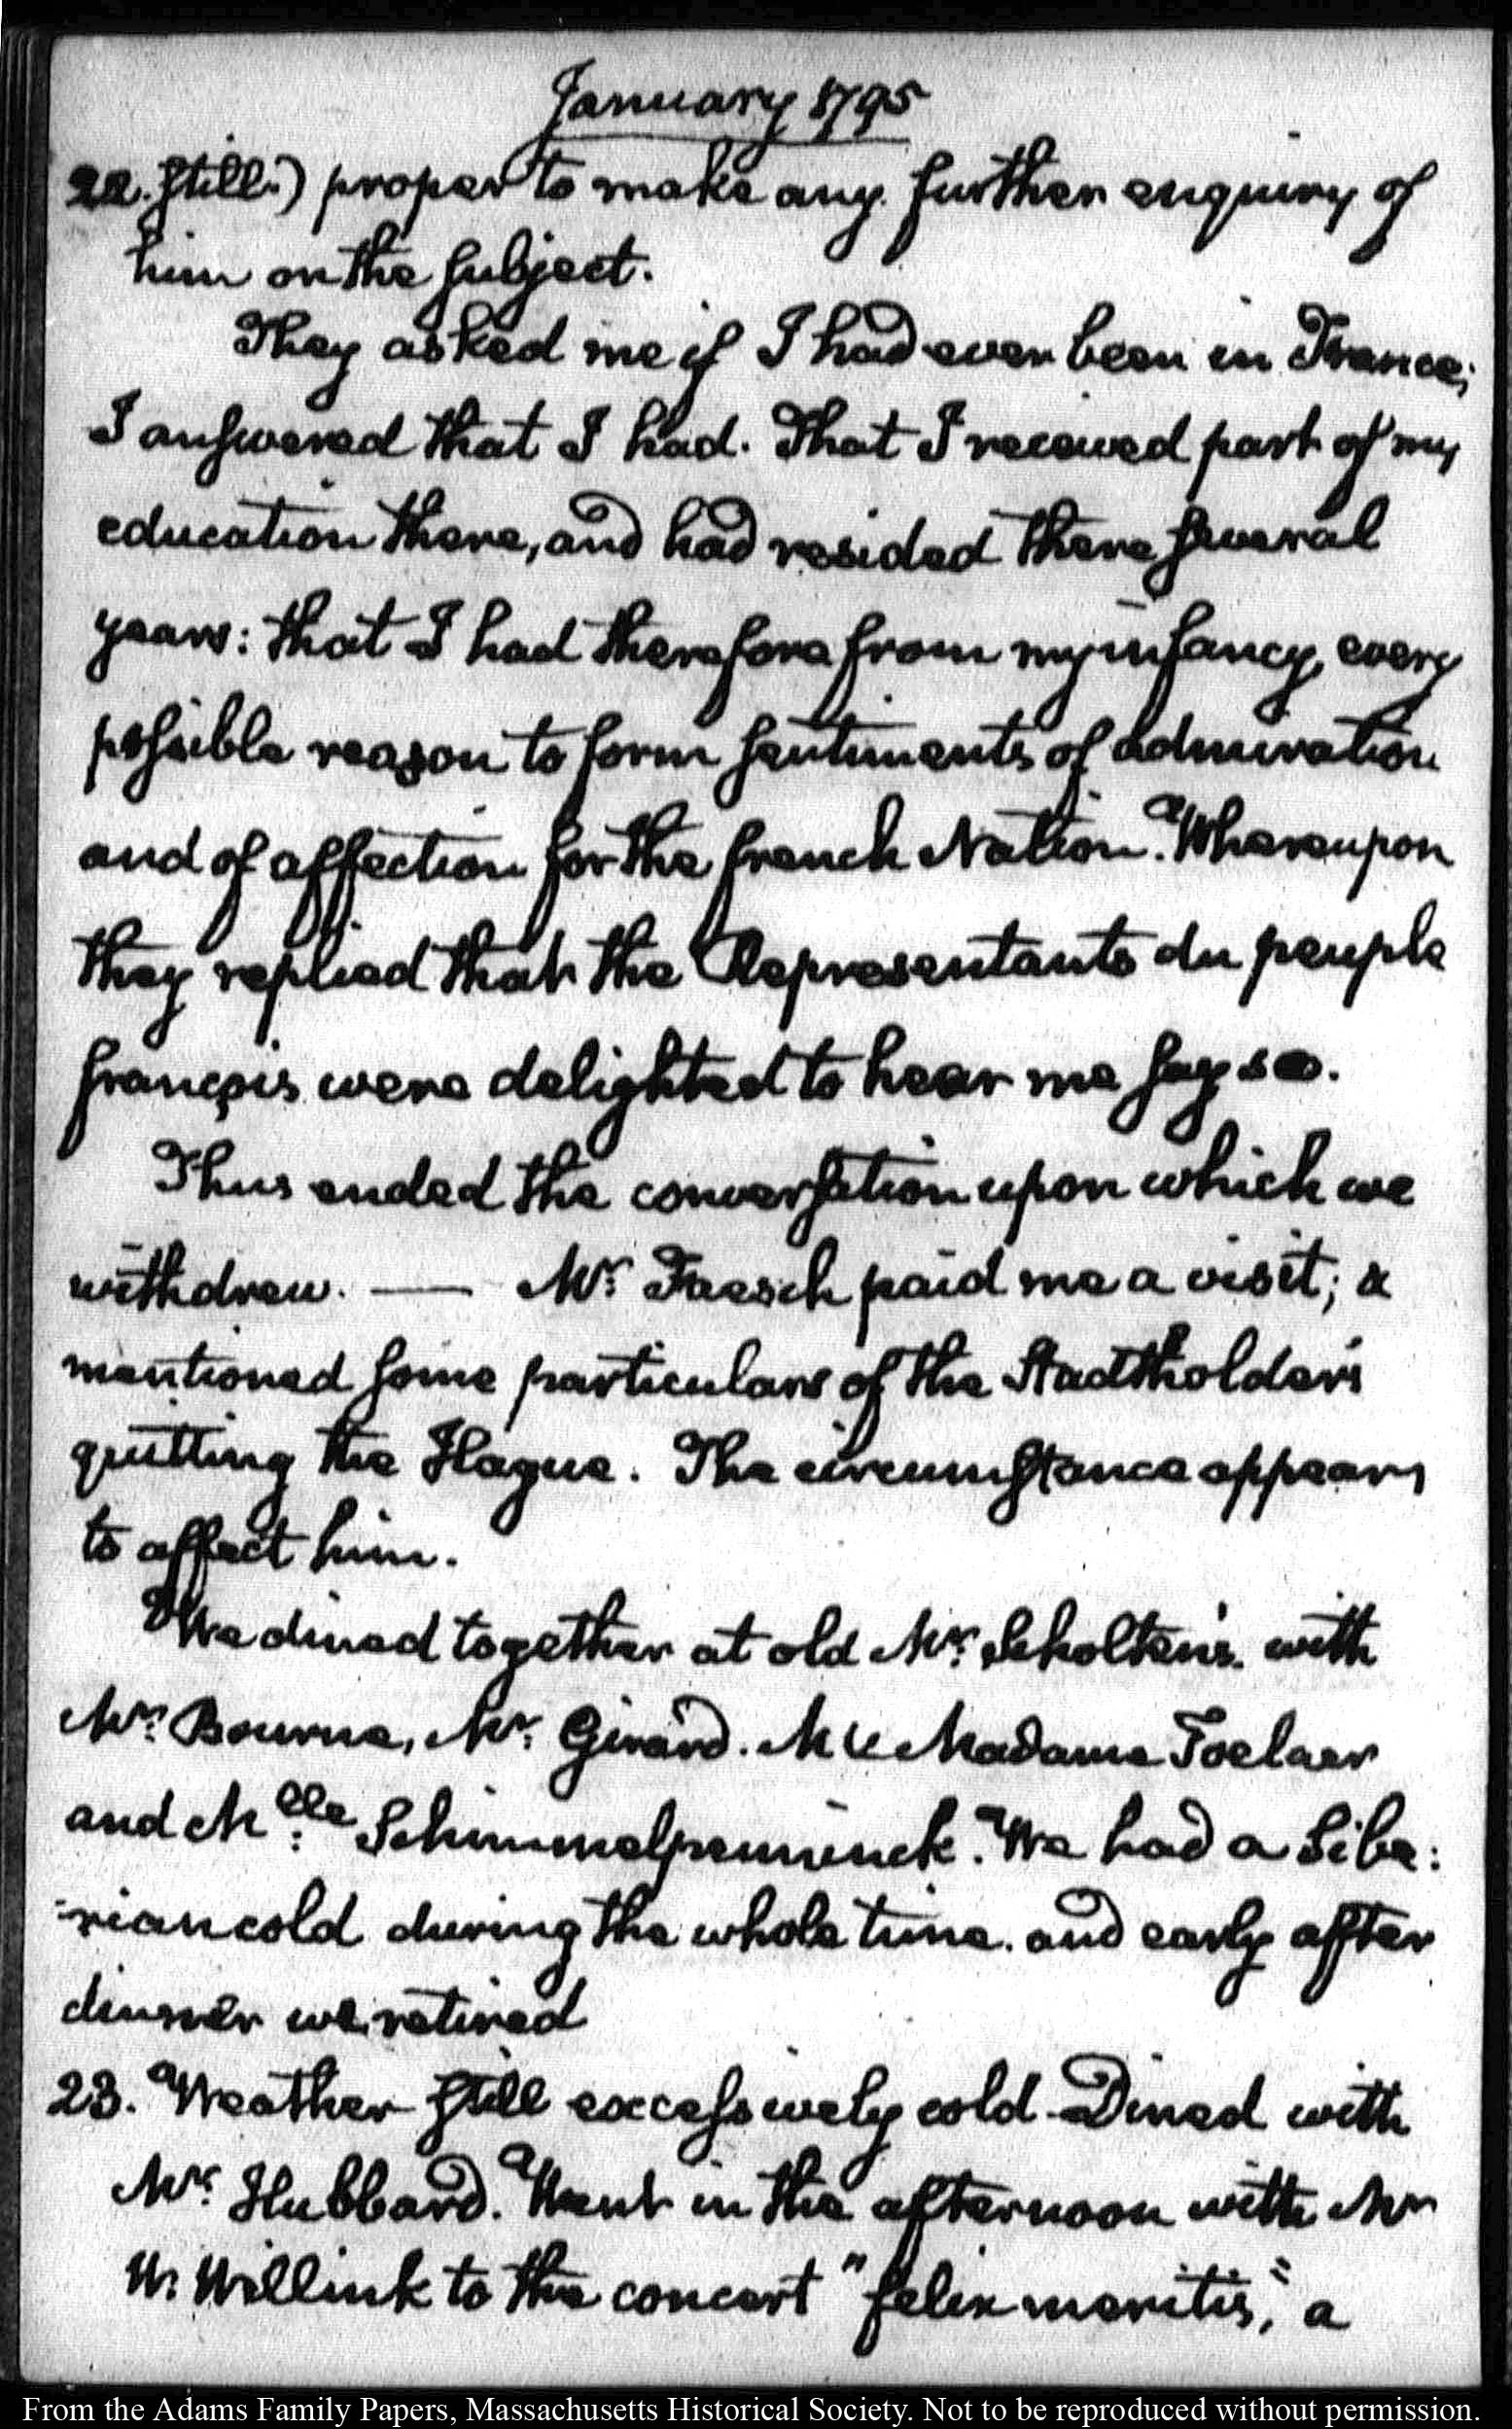 January 1795
22. still.) proper to make any further enquiry of
him on the subject.
They asked me if I had ever been in France;
I answered that I had. That I received part of my
education there, and had resided there several
years: that I had therefore from my infancy, every
possible reason to form sentiments of admiration
and of affection for the french Nation. Whereupon
they replied that the Representants du peuple
françois were delighted to hear me say so.
Thus ended the conversation upon which we
withdrew. — Mr. Faesch paid me a visit; &
mentioned some particulars of the Stadtholder's
quitting the Hague. The circumstance appears
to affect him.
We dined together at old Mr. Scholten's. with
Mr. Bourne, Mr. Girard. M & Madame Toelaer
and M.elle Schimmelpenninck. We had a Sibe:
:rian cold during the whole time. and early after
dinner we retired
23. Weather still excessively cold. Dined with
Mr. Hubbard. Went in the afternoon with Mr
W. Willink to the concert "felix meritis," a
From the Adams Family Papers, Massachusetts Historical Society. Not to be reproduced without permission.